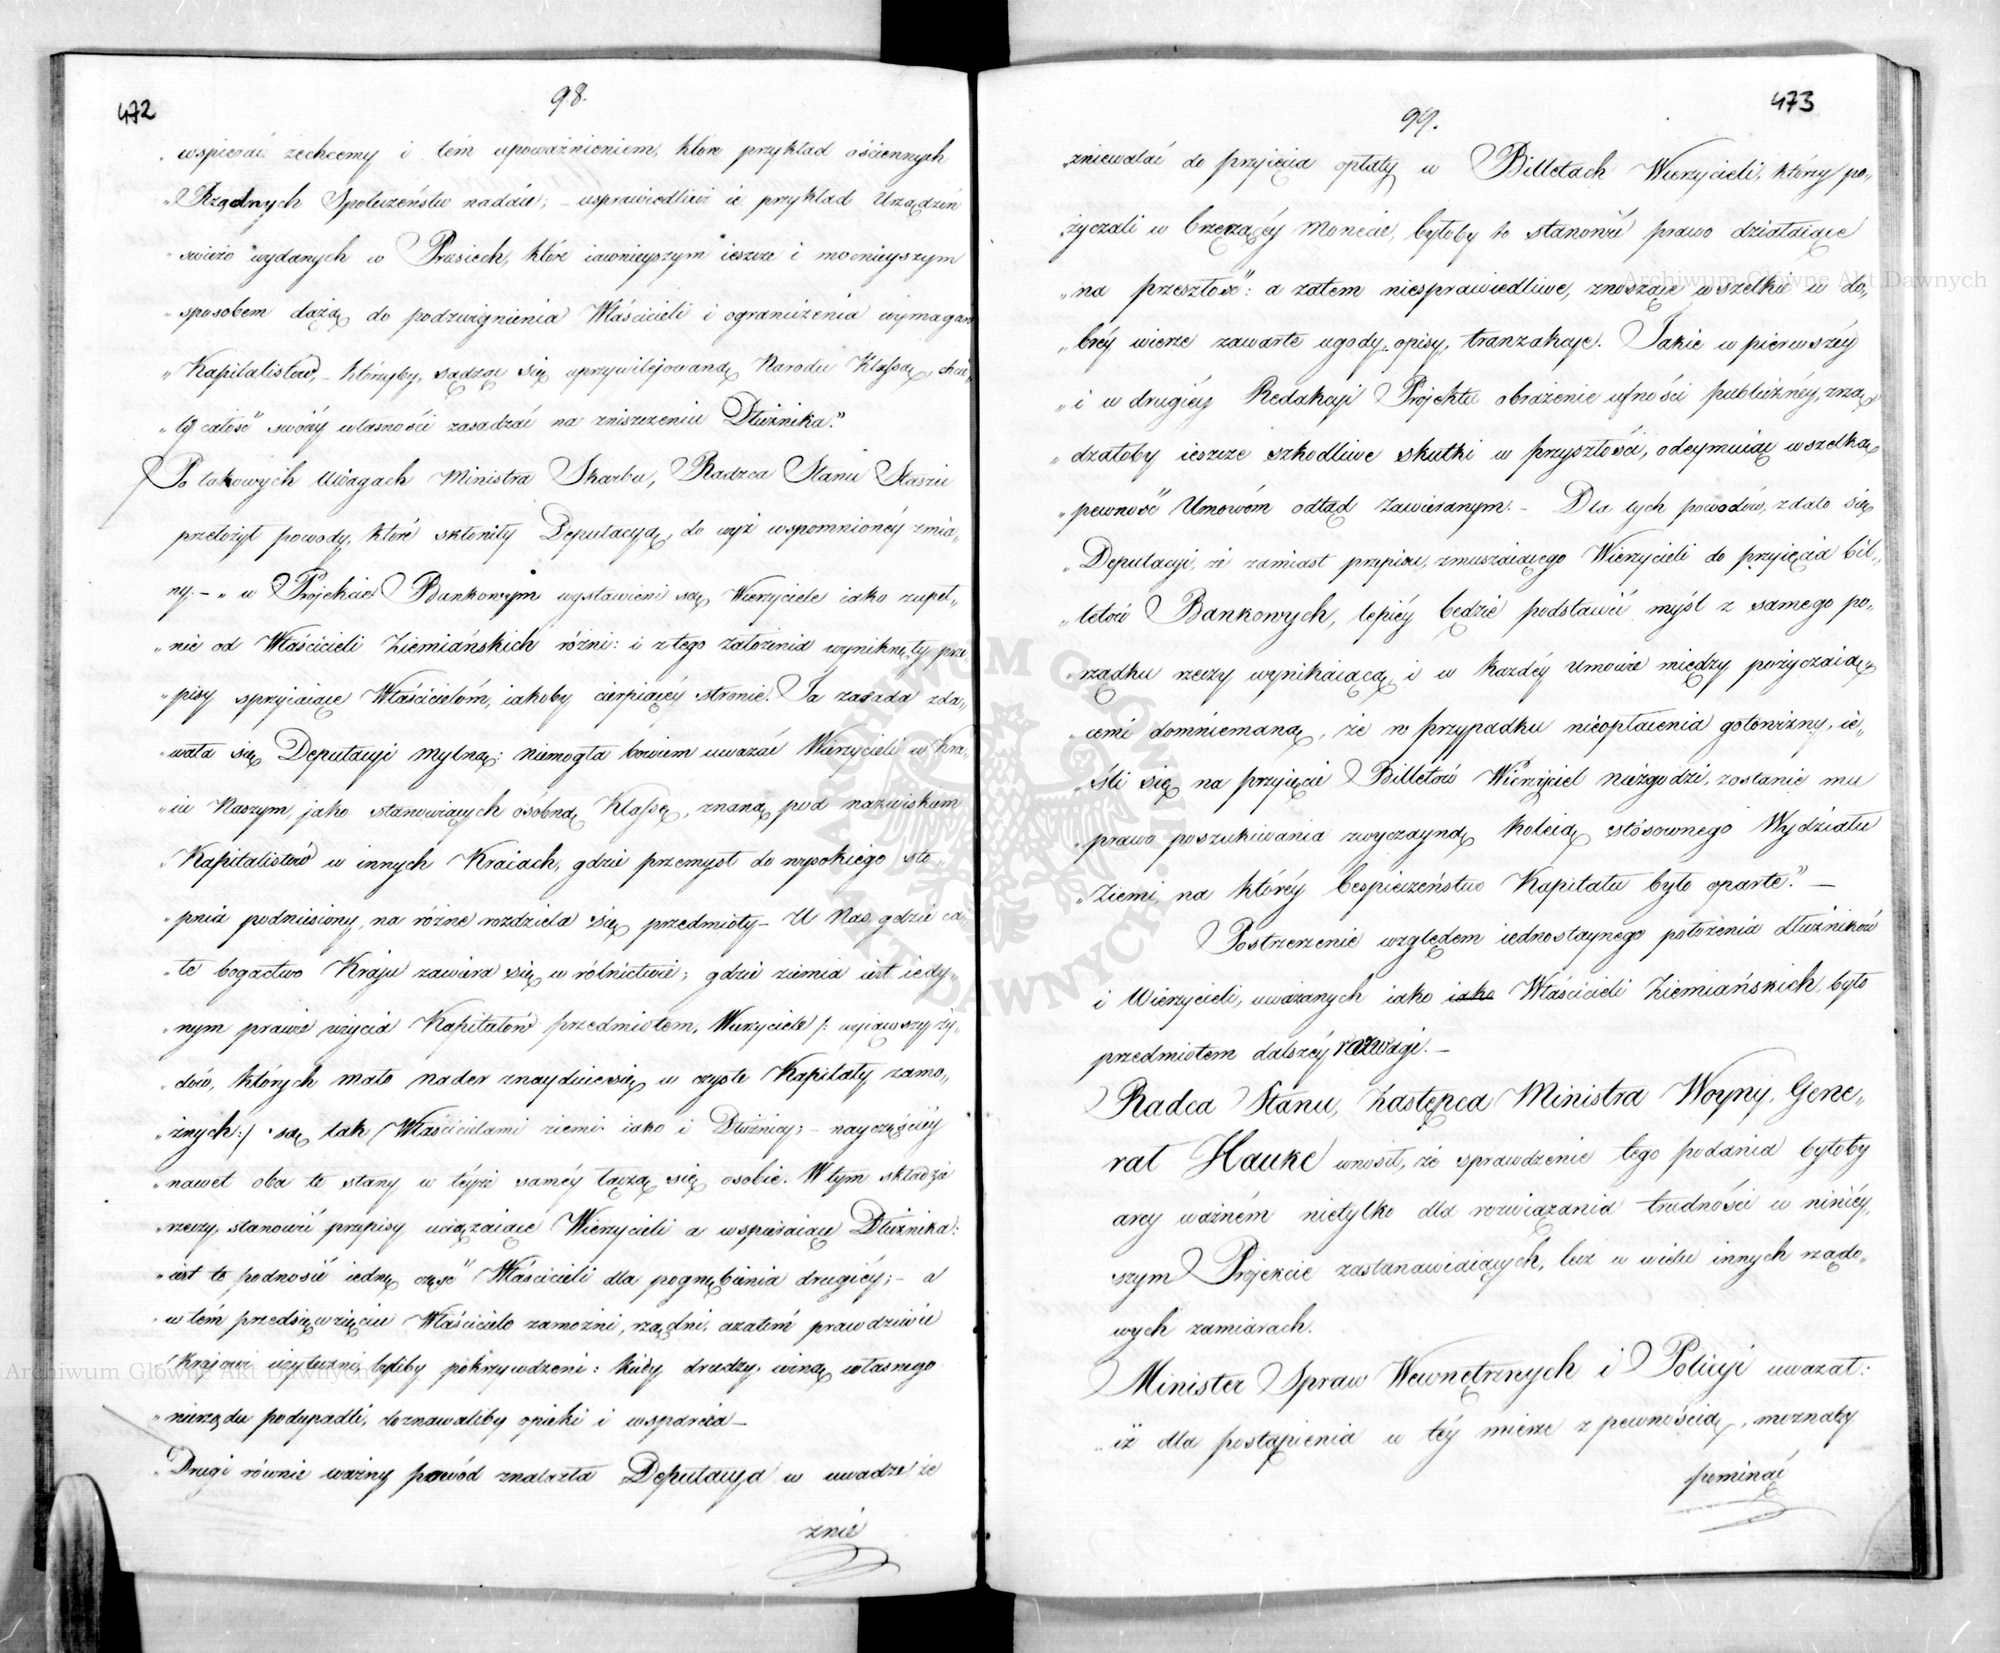 472
98.
„wspierać zechcemy i tém upoważnieniem, które przykład ościennych
„Rządnych Społeczeństw nadaie; – usprawiedliwi ie przykład Urządzeń
„swieżo wydanych w Prusiech, które iawnieyszym ieszcze i mocnieyszym
„sposobem dążą do podzwignienia Właścicieli i ograniczenia wymagań
„Kapitalistów, – którzyby, sądząc się uprzywilejowaną Narodu Klassą, chcie„
„li całość swóiéy własności zasadzać na zniszczeniu Dłużnika."
Po takowych Uwagach Ministra Skarbu, Radzca Stanu Staszic
przełożył powody, które skłoniły Deputacyą, do wyż wspomnionéy zmia„
ny. – „w Projekcie Bankowym wystawieni są Wierzyciele iako zupeł„
„nie od Właścicieli Ziemiańskich różni: i z tego założenia wyniknęły prze„
„pisy sprzyiaiące Właścicielóm, iakoby cierpiącéy stronie. Ta zasada zda„
„wała się Deputacyi mylną: niemogła bowiem uważać Wierzycieli w Kra„
„iu Naszym, jako stanowiących osóbną Klassę, znaną pod nazwiskiem
„Kapitalistów w innych Kraiach, gdzie przemysł do wysokiego sto„
„pnia podniesiony, na różne rozdziela się przedmioty – U Nas, gdzie ca„
„łe bogactwo Kraju zawiera się w rólnictwie; gdzie ziemia iest iedy„
„nym prawie użycia Kapitałów przedmiotem, Wierzyciele /: wyiąwszy ży„
„dów, których mało nader znayduie się w czyste Kapitały zamo„
„żnych:/ są tak Właścicielami ziemi iako i Dłużnicy; – nayczęściéy
„nawet oba te stany w téyże saméy łączą się osobie. W tym składzie
„rzeczy, stanowić przepisy uciążaiące Wierzycieli a wspieraiące Dłużnika:
„iest to podnosić iednę część Właścicieli dla pognębienia drugiéy; – a
„w tém przedsięwzięciu Właściciele zamożni, rządni, azatém prawdziwie
„Krajowi użyteczni byliby pokrzywdzeni: kiedy drudzy, winą własnego
„nierządu podupadli, doznawaliby opieki i wsparcia –
„Drugi równie ważny powód znalazła Deputacya w uwadze że
znie
473
99.
„zniewalać do przyięcia opłaty w Billetach Wierzycieli, którzy po„
„życzali w brzęczącéy monecie, byłoby to stanowić prawo działaiące
„na przeszłość: a zatem niesprawiedliwe, znosząc wszelkie w do„
„bréy wierze zawarte ugody, opisy, tranzakcye. Takie w pierwszéy
„i w drugiéy Redakcyi Projektu obrażenie ufności publicznéy, rzą„
„dzałoby ieszcze szkodliwe skutki w przyszłości, odeymuiąc wszelką
„pewność Umowóm odtąd zawieranym. – Dla tych powodów, zdało się
„Deputacyi, że zamiast przepisu, zmuszaiącego Wierzycieli do przyięcia bil„
„letów Bankowych, lepiéy będzie podstawić myśl z samego po„
„rządku rzeczy wynikaiącą, i w każdéy umowie między pożyczaią„
„cemi domniemaną, że w przypadku nieopłacenia gotowizny, ie„
„śli się na przyięcie Billetów Wierzyciel niezgodzi, zostanie mu
„prawo poszukiwania zwyczayną koleią stósownego Wydziału
„Ziemi, na któréy bespieczeństwo Kapitału było oparte." –
Postrzeżenie względem iednostaynego położenia dłużników
i Wierzycieli, uważanych iako iako Właścicieli Ziemiańskich, było
przedmiotem dalszéy rozwagi. –
Radca Stanu, Zastępca Ministra Woyny, Gene„
rał Hauke wnosił, że sprawdzenie tego podania byłoby
arcy ważném nietylko dla rozwiązania trudności w niniéy„
szym Projekcie zastanawiaiących, lecz w wielu innych rządo„
wych zamiarach.
Minister Spraw Wewnętrznych i Policyi uważał:
„iż dla postąpienia w téy mierze z pewnością, moznaby
pominąć
Archiwum Główne Akt Dawnych
Archiwum Główne Akt Dawnych
ARCHIWUM GŁÓWNE AKT DAWNYCH